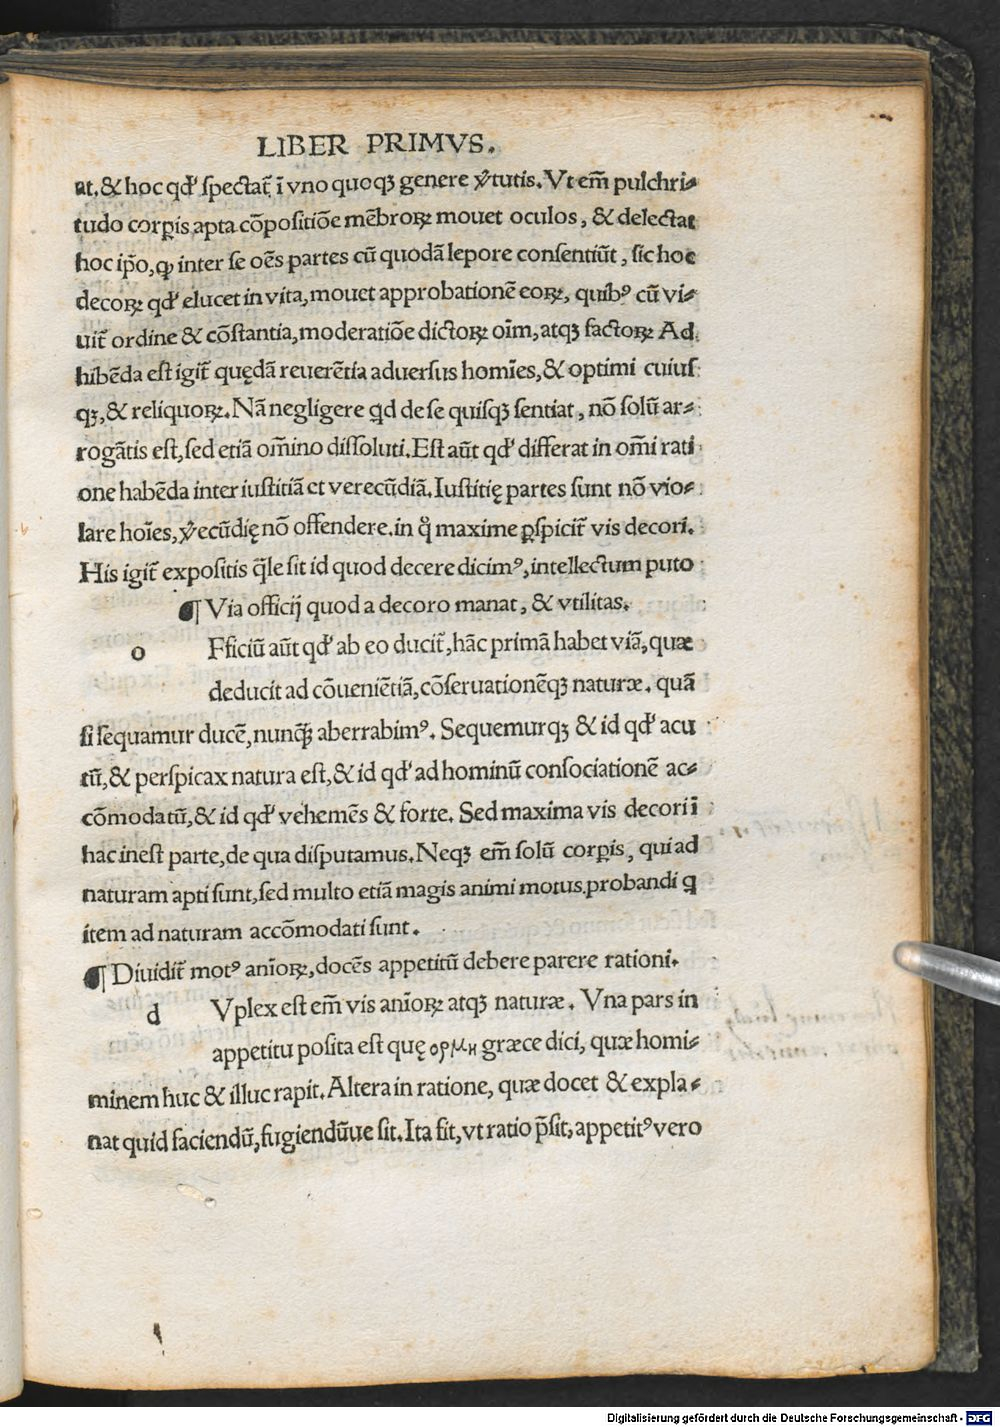 LIBER PRIMVS.
at, & hoc qd' spectat̃ ĩ vno quoqꝫ genere v̾tutis. Vt em̃ pulchri⸗
tudo corꝑis apta cõpositiõe mẽbroꝝ mouet oculos, & delectat
hoc ip̃o, ꝙ inter se oẽs partes cũ quodã lepore consentiũt, sic hoc
decoꝝ qd' elucet in vita, mouet approbationẽ eoꝝ, quibꝰ cũ vi⸗
uit̃ ordine & cõstantia, moderatiõe dictoꝝ oĩm, atqꝫ factoꝝ Ad
hibẽda est igit̃ quędã reuerẽtia aduersus homĩes, & optimi cuius
qꝫ, & reliquoꝝ. Nã negligere qd de se quisqꝫ sentiat, nõ solũ ar⸗
rogãtis est, sed etiã om̃ino dissoluti. Est aũt qd' differat in om̃i rati
one habẽda inter iustitiã et verecũdiã. Iustitię partes sunt nõ vio⸗
lare hoĩes, v̾ecũdię nõ offendere. in q̊ maxime ꝑspicit̃ vis decori.
His igit̃ expositis q̃le sit id quod decere dicimꝰ, intellectum puto
¶ Via officij quod a decoro manat, & vtilitas.
o Fficiũ aũt qd' ab eo ducit̃, hãc primã habet viã, quæ
deducit ad cõueniẽtiã, cõseruationẽqꝫ naturæ. quã
si sequamur ducẽ, nunꝙ̃ aberrabimꝰ. Sequemurqꝫ & id qd' acu
tũ, & perspicax natura est, & id qd' ad hominũ consociationẽ ac⸗
cõmodatũ, & id qd' vehemẽs & forte. Sed maxima vis decori ĩ
hac inest parte, de qua disputamus. Neqꝫ em̃ solũ corꝑis, qui ad
naturam apti sunt, sed multo etiã magis animi motus. probandi q
item ad naturam accõmodati sunt.
¶ Diuidit̃ motꝰ anĩoꝝ, docẽs appetitũ debere parere rationi.
d Vplex est em̃ vis anĩoꝝ atqꝫ naturæ. Vna pars in
appetitu posita est quę ορμη græce dici, quæ homi⸗
minem huc & illuc rapit. Altera in ratione, quæ docet & expla⸗
nat quid faciendũ, fugiendũue sit. Ita fit, vt ratio p̃sit, appetitꝰ vero
Digitalisierung gefördert durch die Deutsche Forschungsgemeinschaft - DFG